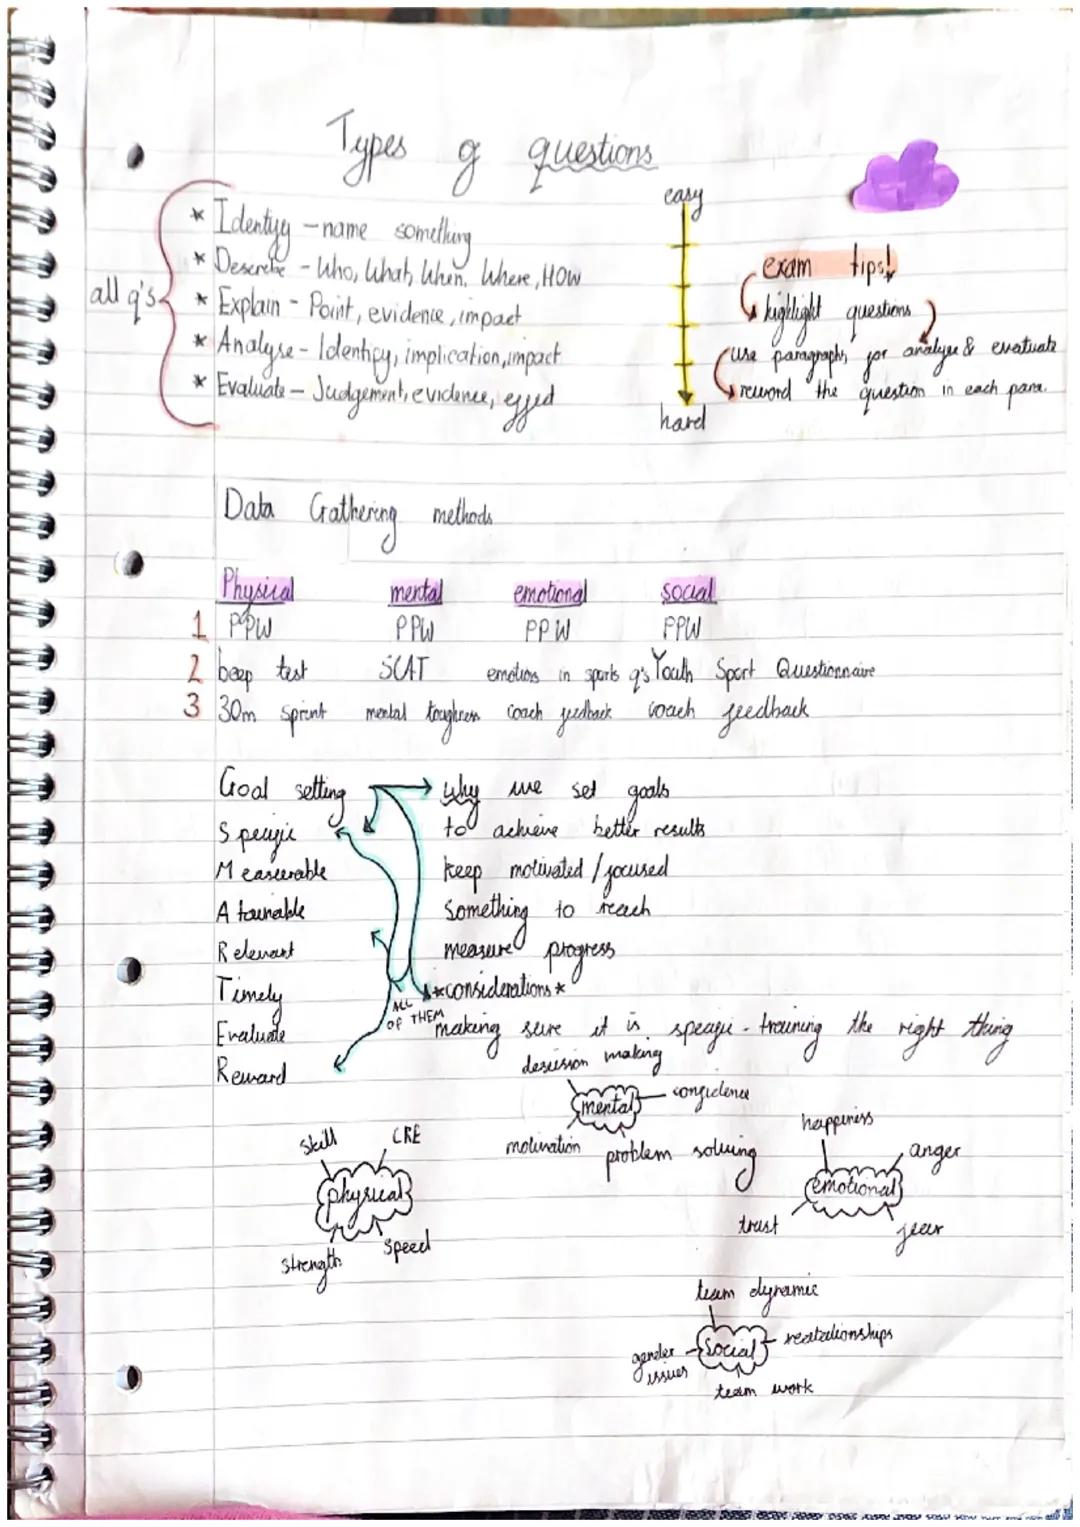 Types of questions
all q's
* Identify - name something
* Describe - Who, What, When, Where, HOW
* Explain - Point, evidence, impact
* Analyse - Identify, implication, impact
* Evaluate - Judgement, evidence, effect
easy
hard
exam tips!
highlight questions
use paragraphs for analyse & evaluate
reword the question in each para.
Data Gathering methods
Physical mental emotional social
1 PPW PPW PPW PPW
2 beep test SCAT emotions in sports q's Youth Sport Questionnaire
3 30m sprint mental toughness coach feedback coach feedback
Goal setting
Specific
Measurable
Attainable
Relevant
Timely
Evaluate
Reward
ALL
OF THEM
why we set goals
to achieve better results
keep motivated / focused
Something to reach
measure progress
*considerations*
making sure it is specific - training the right thing
mental
desision making
confidence
motivation
problem solving
physical
skill
CRE
strength
speed
emotional
happiness
anger
trust
fear
social
team dynamic
realationships
gender
issues
team work